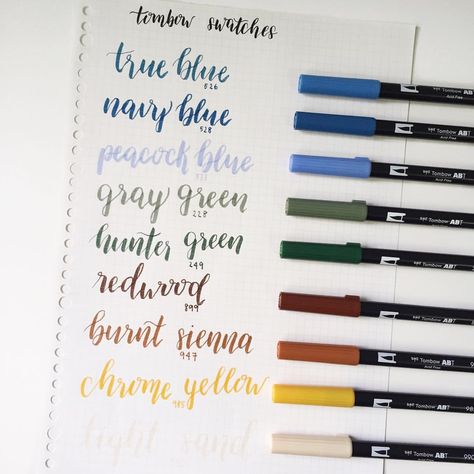 tombow swatches
true blue
526
navy blue
528
peacock blue
533
gray green
228
hunter green
249
redwood
899
burnt sienna
947
chrome yellow
985
light sand
Tombow ABT
Acid Free
Tombow ABT
Tombow ABT
Acid Free
Tombow ABT
Tombow ABT
Tombow ABT
Tombow ABT
Tombow ABT
98
Tombow ABT
990